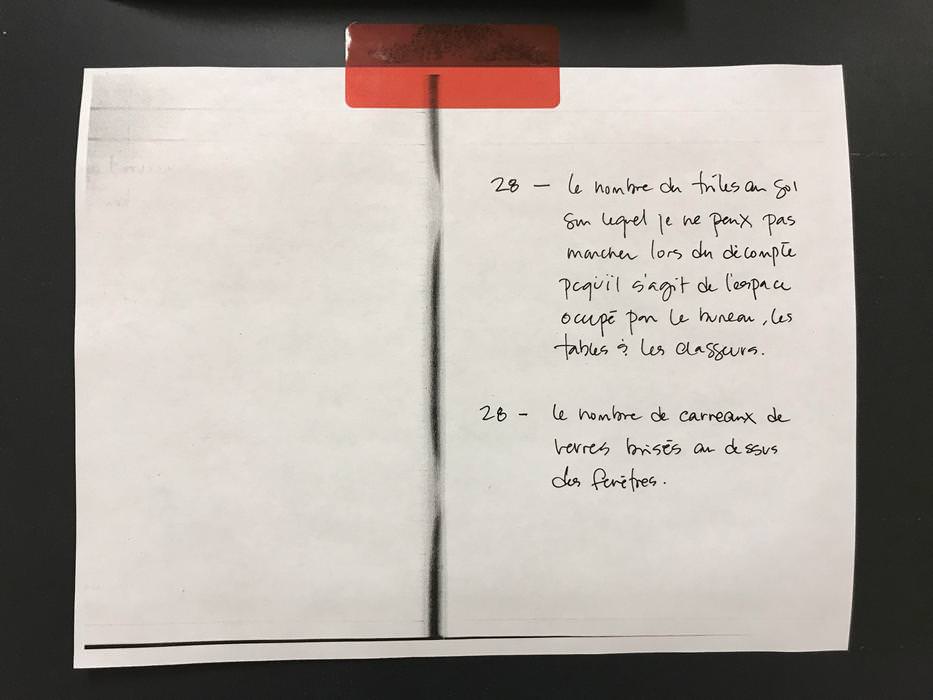 28 — le nombre du tuiles au sol
sur lequel je ne peux pas
marcher lors du décompte
pcqu'il s'agit de l'espace
ocupé par le bureau, les
tables & les classeurs.
28 - le nombre de carreaux de
verres brisés au dessus
des fenêtres.